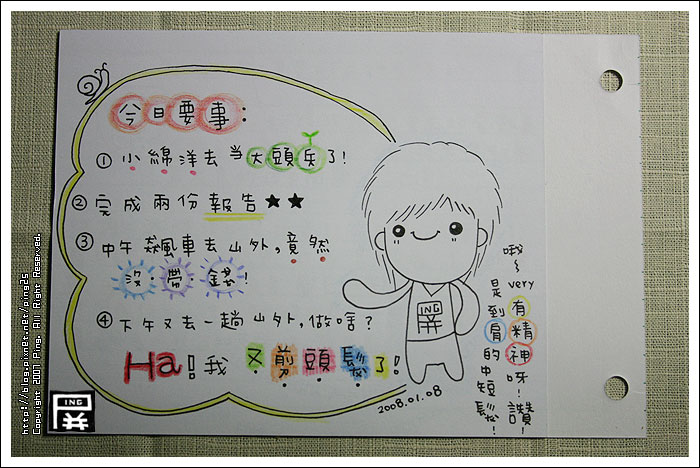 今日要事：
① 小綿洋去當大頭兵了！
② 完成兩份報告★★
③ 中午飆風車去山外，竟然
沒帶錢！
④ 下午又去一趟山外，做啥？
Ha! 我又剪頭髮了！
ING
2008.01.08
哦～very有精神呀！讚！
是到肩的中短髮！
http://blog.pixnet.net/ping25
Copyright 2007 Ping. All Right Reserved.
ING